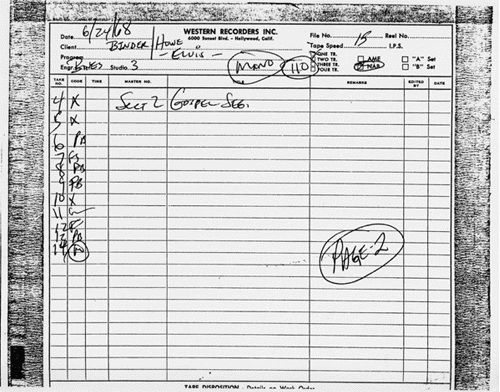 6/24/68 WESTERN RECORDERS INC. File No. 15 Reel No.
Date 6000 Sunset Blvd. - Hollywood, Calif. Tape Speed I.P.S.
Client BINDER/HOWE
- ELVIS - ONE TR.
Program MONO 110 TWO TR. AME "A" Set
Engr. Studio 3 THREE TR. NAB "B" Set
FOUR TR.
TAKE NO. CODE TIME MASTER NO. TITLE REMARKS EDITED BY DATE
4 X SECT 2 GOSPEL SEG.
5 X
6 PB
7 FS
8 PB
9 PB
10 X
11
12 F
13 PB
14
PAGE-2
TAPE DISPOSITION - Details on Work Order